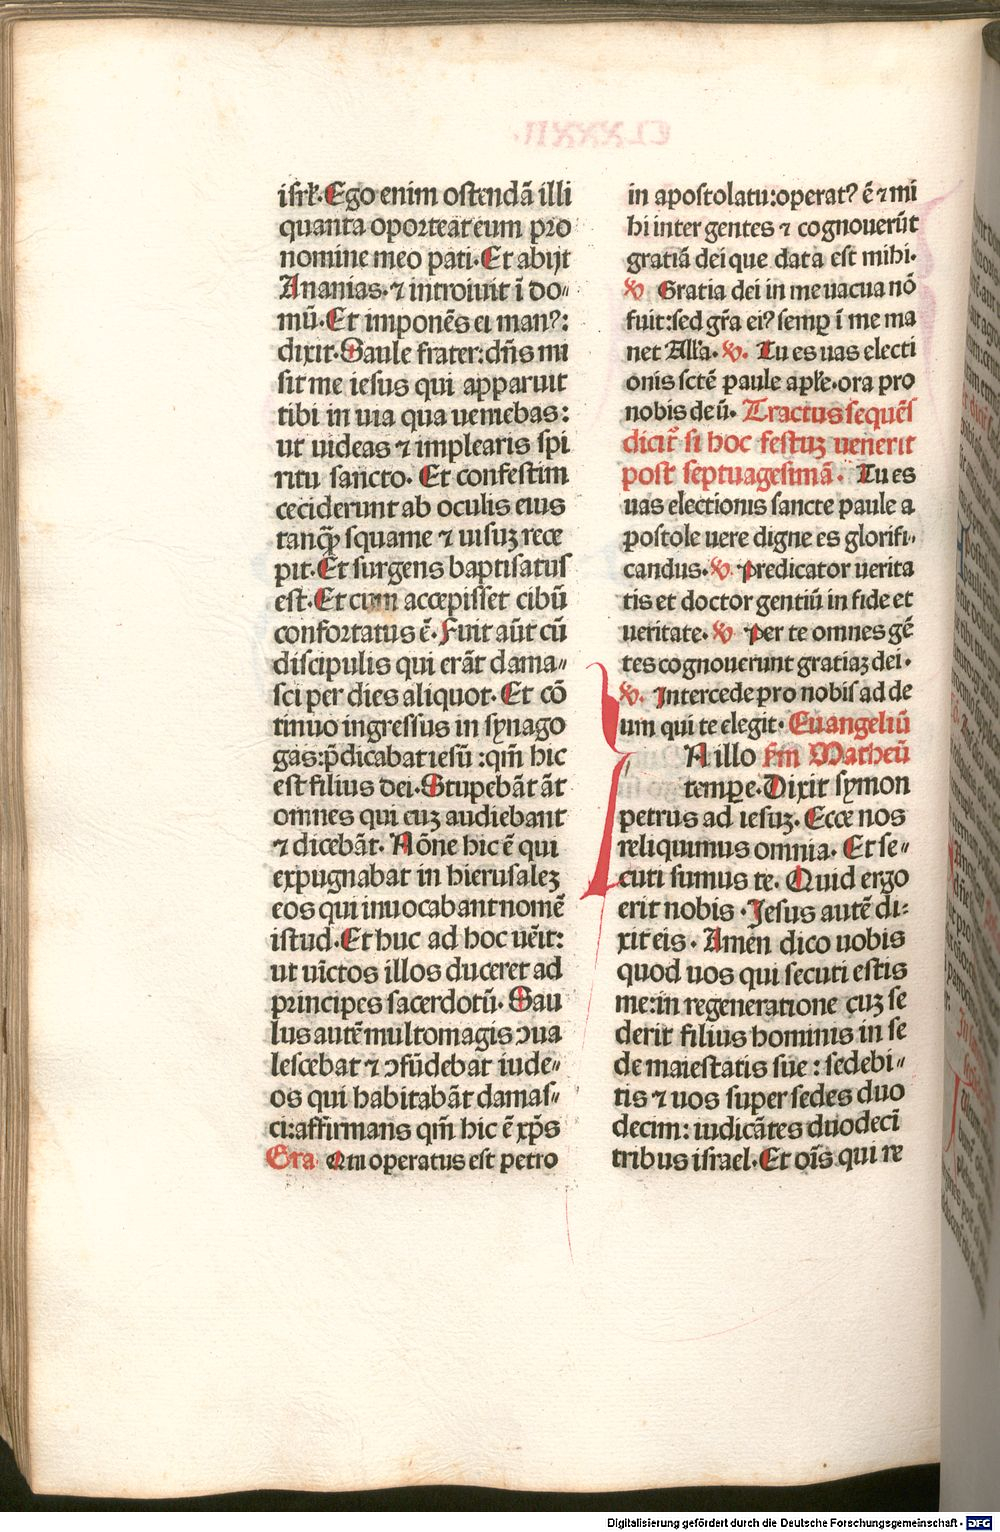 isrl̄. Ego enim ostendā illi
quanta oporteat eum pro
nomine meo pati. Et abijt
Ananias. ⁊ introiuit ī do⸗
mū. Et imponēs ei man?:
dixit. Saule frater: dn̄s mi
sit me iesus qui apparuit
tibi in uia qua ueniebas:
ut uideas ⁊ implearis spi
ritu sancto. Et confestim
ceciderunt ab oculis eius
tanqꝫ squame ⁊ uisuꝫ rece
pit. Et surgens baptisatus
est. Et cum accepisset cibū
confortatus ē. Fuit aūt cū
discipulis qui erāt dama⸗
sci per dies aliquot. Et cō
tinuo ingressus in synago
gas: p̄dicabat iesū : qm̄ hic
est filius dei. Stupebāt āt
omnes qui cuꝫ audiebant
⁊ dicebāt. Nōne hic ē qui
expugnabat in hierusaleꝫ
eos qui inuocabant nomē
istud. Et huc ad hoc uēit:
ut uīctos illos duceret ad
principes sacerdotū. Sau
lus autē multo magis ↄua
lescebat ⁊ ↄfūdebat iude⸗
os qui habitabāt damas⸗
ci: affirmans qm̄ hic ē xp̄s
Gra. Qui operatus est petro
in apostolatu: operat? ē ⁊ mi
hi inter gentes ⁊ cognouerūt
gratiā dei que data est mihi.
℣. Gratia dei in me uacua nō
fuit: sed gr̄a ei? semꝑ ī me ma
net All̄a. ℣. Tu es uas electi
onis sctē paule apl̄e. ora pro
nobis deū. Tractus sequēs
dicit̄ si hoc festuꝫ uenerit
post septuagesimā. Tu es
uas electionis sancte paule a
postole uere digne es glorifi⸗
candus. ℣. Predicator uerita
tis et doctor gentiū in fide et
ueritate. ℣. Per te omnes gē
tes cognouerunt gratiaꝫ dei.
℣. Intercede pro nobis ad de
um qui te elegit. Euangeliū
IN illo scđm Matheū
tempe. Dixit symon
petrus ad iesuꝫ. Ecce nos
reliquimus omnia. Et se⸗
cuti sumus te. Quid ergo
erit nobis. Jesus autē di⸗
xit eis. Amen dico uobis
quod uos qui secuti estis
me: in regeneratione cuꝫ se
derit filius hominis in se
de maiestatis sue : sedebi⸗
tis ⁊ uos super sedes duo
decim: iudicātes duodecī
tribus israel. Et oīs qui re
Digitalisierung gefördert durch die Deutsche Forschungsgemeinschaft - DFG